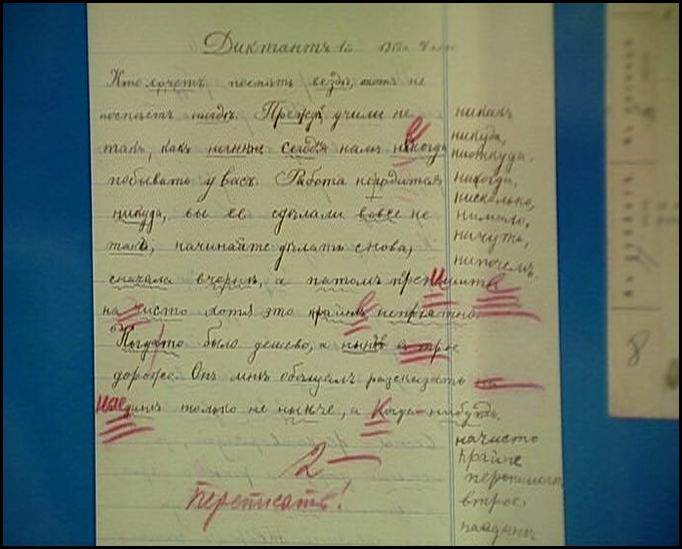 Диктантъ
Кто хочетъ поспѣть вездѣ, тотъ не
поспѣетъ нигдѣ. Прежде учили не
такъ, какъ нынѣ. Сегодня намъ некогда
побывать у васъ. Работа не годится
никуда, вы ее сдѣлали вовсе не
такъ, начинайте дѣлать снова,
сначала вчернѣ, а патомъ
на чисто хотя это крайнѣ непріятно.
Когда то было дешево, а нынѣ
дороже. Онъ мнѣ обѣщалъ разсказать
только не нынче, а Когда нибудь.
2 –
Переписать!
никакъ
никуда,
ниоткуда,
никогда,
нисколько,
нимало,
ничуть,
нипочемъ.
начисто
крайне
втрое
наединѣ
8